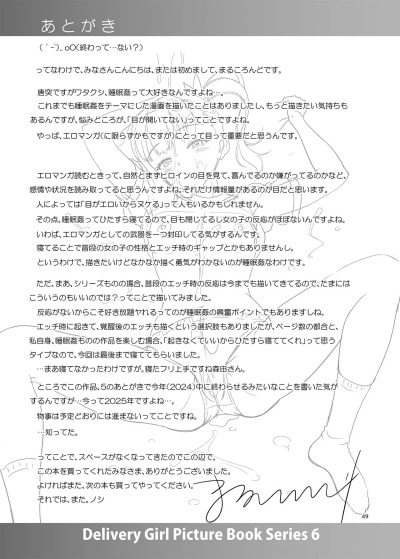 あとがき
(´-`)｡oO(終わって…ない？)
ってなわけで、みなさんこんにちは、または初めまして、まるころんどです。
唐突ですがワタクシ、睡眠姦って大好きなんですよね…。
これまでも睡眠姦をテーマにした漫画を描いたことはありましたし、もっと描きたい気持ちも
あるんですが、悩みどころが、「目が開いてない」ってことですよね。
やっぱ、エロマンガ(に限らずかもですが)にとって目って重要だと思うんです。
エロマンガ読むときって、自然とまずヒロインの目を見て、喜んでるのか嫌がってるのかなど、
感情や状況を読み取ってると思うんですよね。それだけ情報量があるのが目だと思います。
人によっては「目がエロいからヌケる」って人もいるかもしれません。
その点、睡眠姦ってひたすら寝てるので、目も閉じてるし女の子の反応がほぼないんですよね。
いわば、エロマンガとしての武器を一つ封印してる気がするんです。
寝てることで普段の女の子の性格とエッチ時のギャップとかもありませんし。
というわけで、描きたいけどなかなか描く勇気がわかないのが睡眠姦なわけです。
ただ、まあ、シリーズものの場合、普段のエッチ時の反応は今までも描いてきてるので、たまには
こういうのもいいのでは？ってことで描いてみました。
反応がないからこそ好き放題ヤれるってのが睡眠姦の興奮ポイントでもありますしね。
エッチ時に起きて、覚醒後のエッチも描くという選択肢もありましたが、ページ数の都合と、
私自身、睡眠姦ものの作品を楽しむ場合、「起きなくていいからひたすら寝ててくれ」って思う
タイプなので、今回は最後まで寝ててもらいました。
…まあ寝てなかったわけですが。寝たフリ上手ですね森田さん。
ところでこの作品、5のあとがきで今年(2024)中に終わらせるみたいなことを書いた気が
するんですが…今って2025年ですよね…。
物事は予定どおりには進まないってことですね。
…知ってた。
ってことで、スペースがなくなってきたのでこの辺で。
この本を買ってくれたみなさま、ありがとうございました。
よければまた、次の本も買ってやってください。
それでは、また。ノシ
49
Delivery Girl Picture Book Series 6